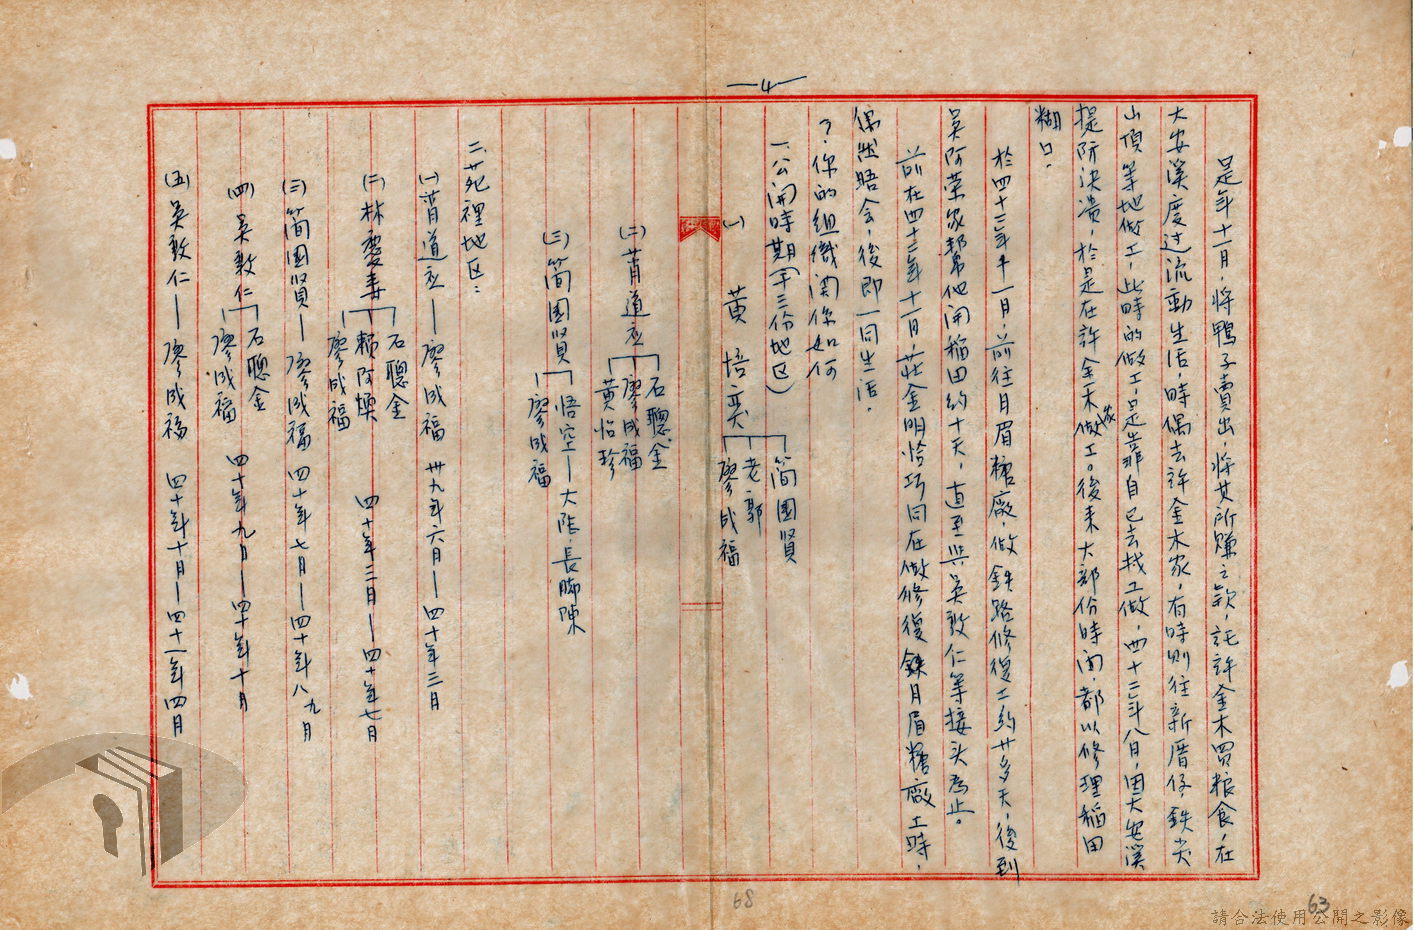 —4—
是年十一月，将鴨子賣出，将其所賺之款，託許金木買粮食，在
大安溪度过流動生活，時偶去許金木家，有時则往新厝仔，鉄尖
山頂等地做工，此時的做工，是靠自己去找工做，四十三年八月，因大安溪
提防决溃，於是在許金木家做工。後来大部份時间，都以修理稲田
糊口。
於四十三年十一月，前往月眉糖廠，做鉄路修復工约廿多天，後到
吳阿荣家幫他開稲田约十天，直至與吳敦仁等接头為止。
前在四十三年十一月，莊金明恰巧同在做修復鉄月眉糖廠工時，
偶然晤会，後即一同生活。
？你的組織関係如何
一、公開時期（第三份地区）
(一) 黄培奕 简国贤 老郭 廖成福
(二) 萧道应 石聰金 廖成福 黄怡珍
(三) 简国贤 悟空—大陈、長脚陳 廖成福
二、苑裡地区：
(一) 萧道应—廖成福 卅九年六月—四十年三月
(二) 林慶壽 石聰金 賴阿煥 廖成福 四十年三月—四十年七月
(三) 简国贤—廖成福 四十年七月—四十年八九月
(四) 吳敦仁 石聰金 廖成福 四十年九月—四十年十月
(五) 吳敦仁—廖成福 四十年十月—四十一年四月
68
63
請合法使用公開之影像